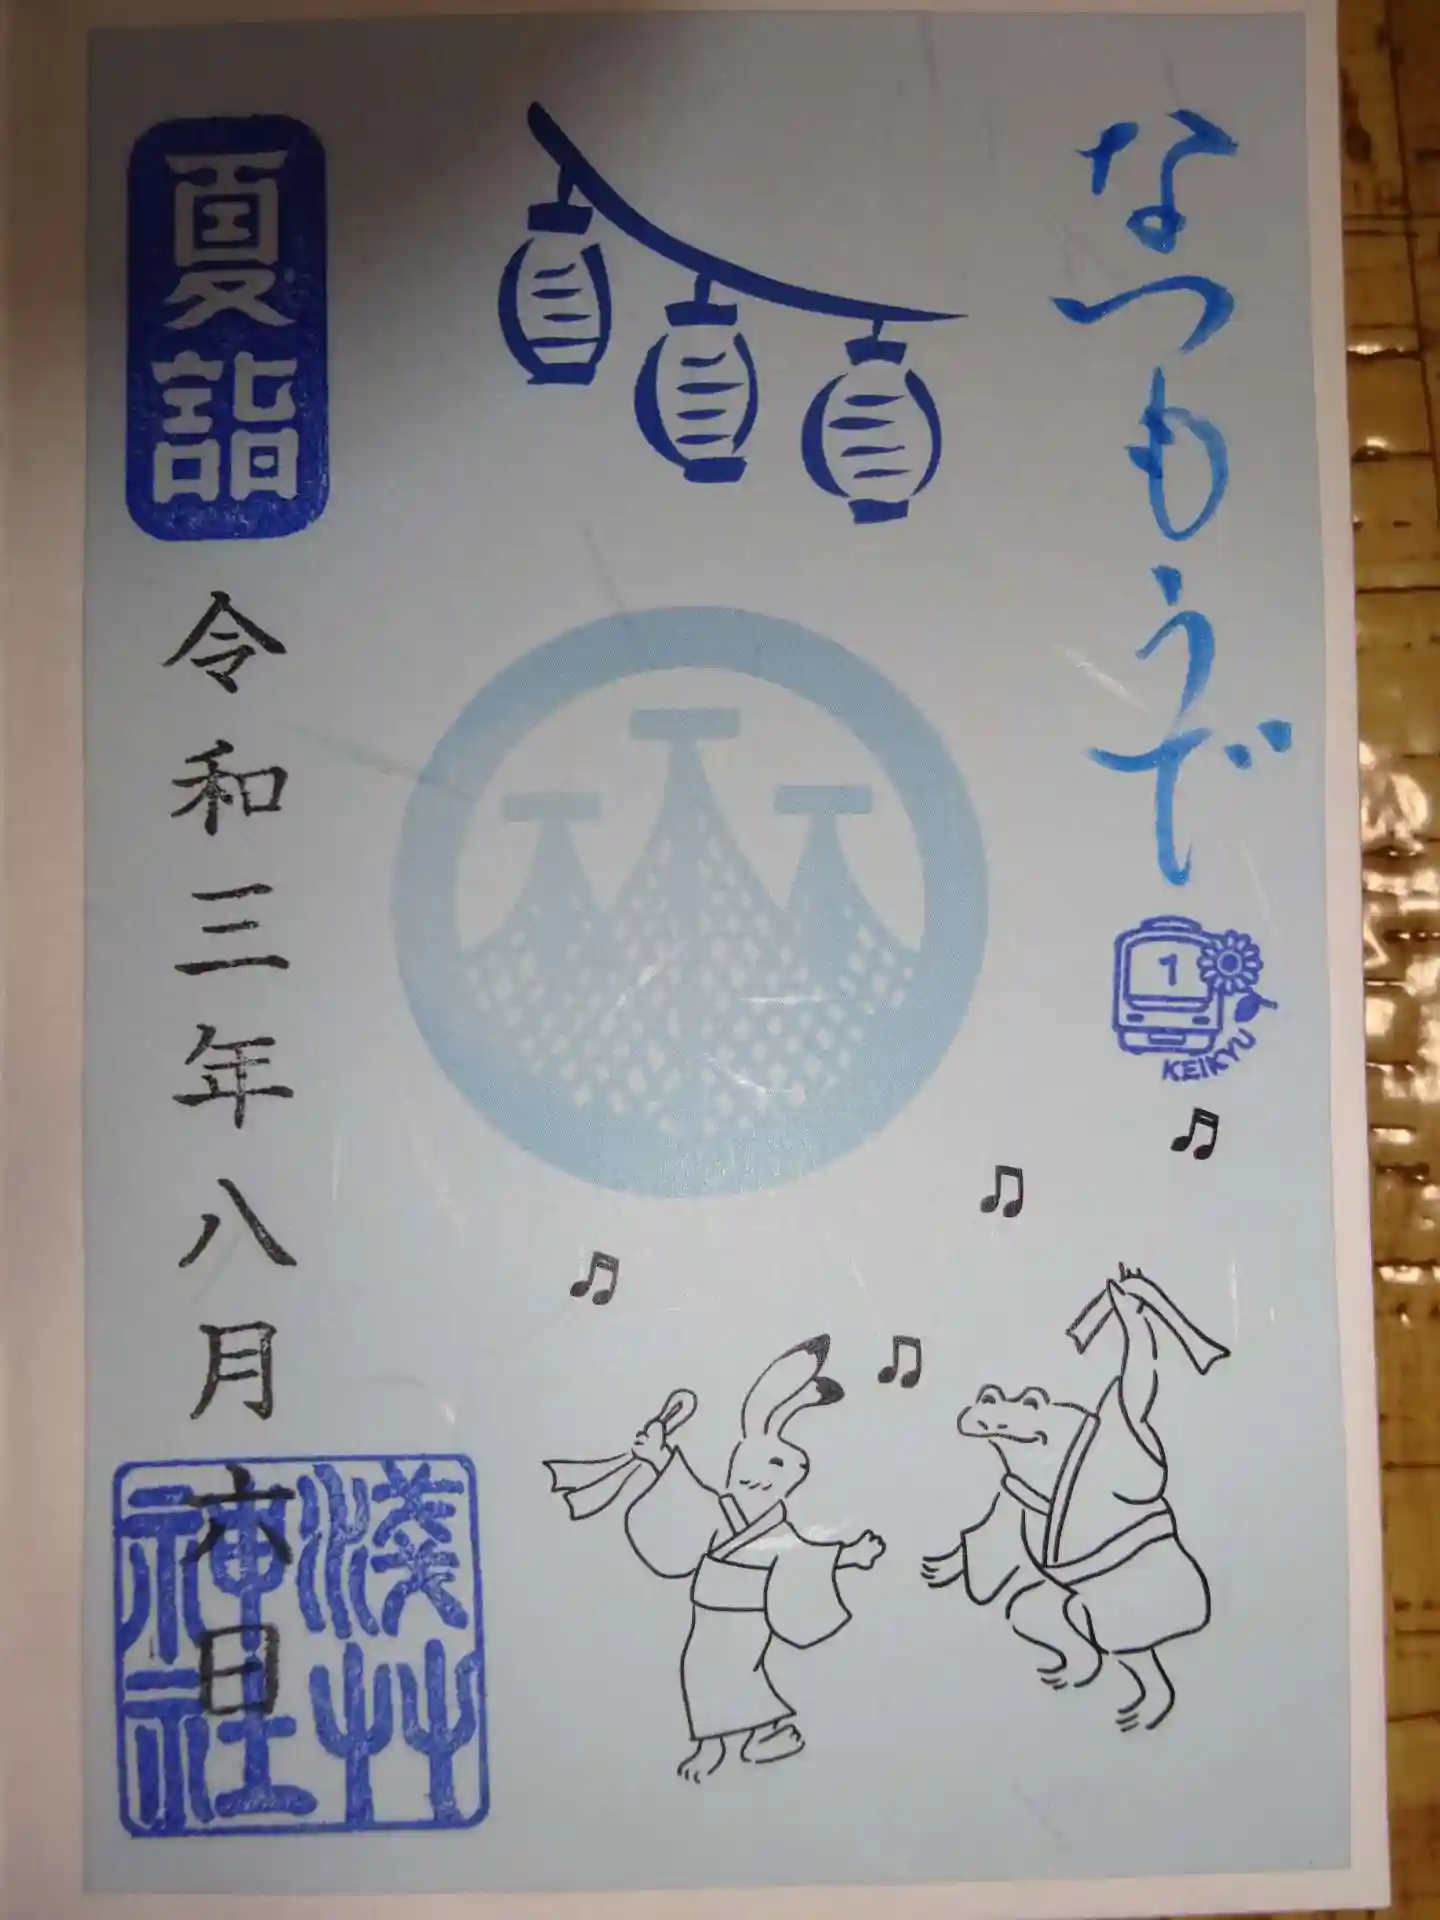 なつもうで
1
KEIKYU
夏詣
令和三年八月六日
浅草神社